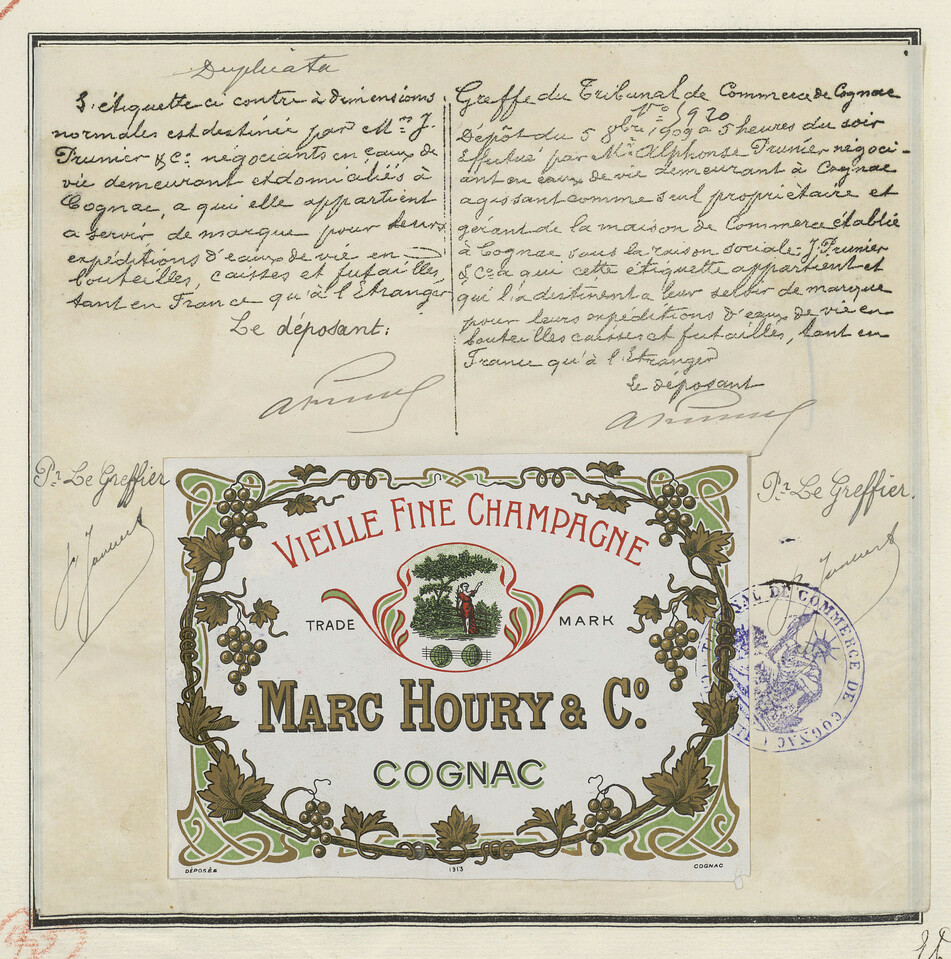 Duplicata
L'étiquette ci contre à dimensions
normales est destinée par Mrs J.
Prunier & Co. négociants en eaux de
vie demeurant et domiciliés à
Cognac, a qui elle appartient
a servir de marque pour leurs
expéditions d'eaux de vie en
bouteilles, caisses et futailles
tant en France qu'à l'Etranger
Le déposant:
Greffe du Tribunal de Commerce de Cognac
No 5920
Dépôt du 5 9bre 1909 à 5 heures du soir
Effectué par Mr Alphonse Prunier negoci-
ant en eaux de vie demeurant à Cognac
agissant comme seul propriétaire et
gérant de la maison de Commerce établie
à Cognac sous la raison sociale: J. Prunier
& Co a qui cette étiquette appartient et
qui l'a destinent a leur servir de marque
pour leurs expéditions d'eaux de vie en
bouteilles caisses et futailles, tant en
France qu'à l'Etranger
Le déposant
Pr Le Greffier
Pr Le Greffier.
VIEILLE FINE CHAMPAGNE
TRADE MARK
MARC HOURY & Co.
COGNAC
DÉPOSÉE
1313
COGNAC
TRIBUNAL DE COMMERCE DE COGNAC